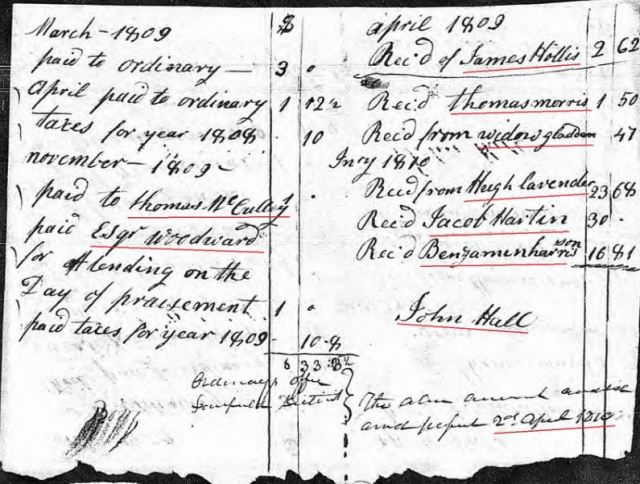 March - 1809 $
paid to ordinary — 3 "
April paid to ordinary 1 12½
taxes for year 1808 . 10
november - 1809 -
paid to thomas McCulley 1 .
paid Esqr Woodward
for Atending on the
Day of praisement 1 "
paid taxes for year 1809 - 10-8
6 33 82
Ordinarys Office
District
april 1809
Rec'd of James Hollis 2 62
Rec'd thomas morris 1 50
Rec'd from widow gladden 41
Jnry 1810
Rec'd from Hugh lavender 23 68
Rec'd Jacob Hartin 30 -
Rec'd Benjamen harrison 16 81
John Hall
The amount
and 2nd April 1810